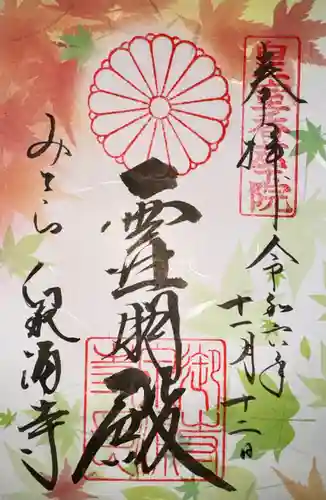 奉拝
皇室香華院
令和六年
十一月十二日
霊明殿
みてら 泉涌寺